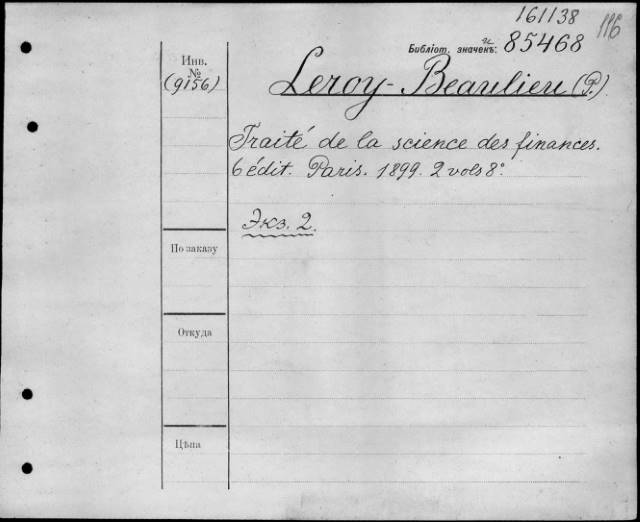 161138
116
Библіот. значекъ: 85468
Инв.
№
(9156)
Leroy-Beaulieu (P.)
Traité de la science des finances.
6 édit. Paris. 1899. 2 vols 8º
Экз. 2.
По заказу
Откуда
Цѣна